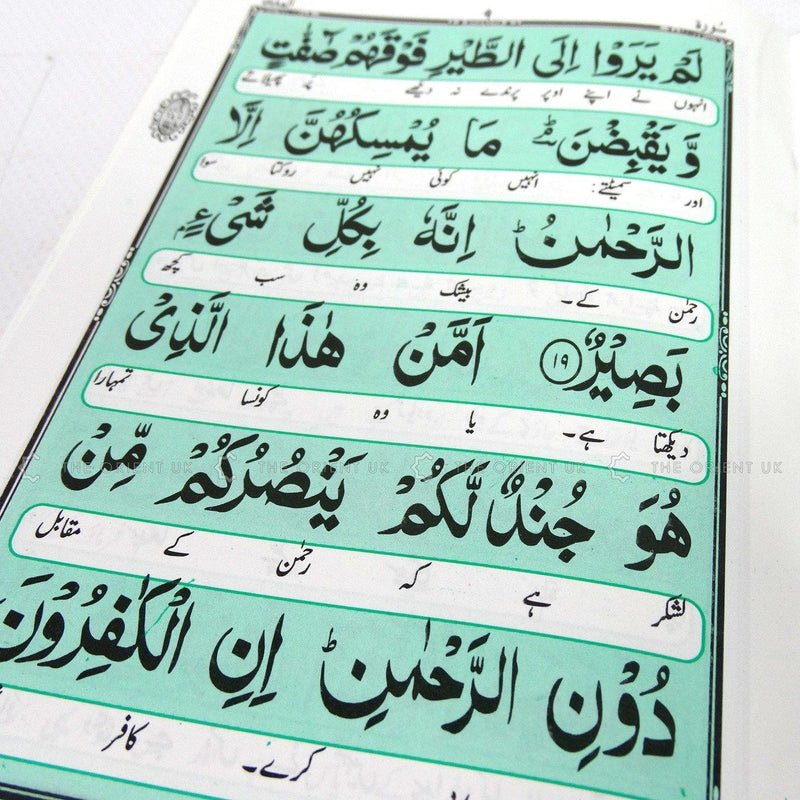 ۹
سورة
لَمْ يَرَوْا اِلَى الطَّيْرِ فَوْقَهُمْ صٰٓفّٰتٍ
انہوں نے اپنے اوپر پرندے نہ دیکھے پر پھیلاتے
وَّيَقْبِضْنَ ؕۘ مَا يُمْسِكُهُنَّ اِلَّا
اور سمیٹتے: انہیں کوئی نہیں روکتا سوا
الرَّحْمٰنُ ؕ اِنَّهٗ بِكُلِّ شَیْءٍۭ
رحمٰن کے۔ بیشک وہ سب کچھ
بَصِيْرٌ ۱۹ اَمَّنْ هٰذَا الَّذِیْ
دیکھتا ہے۔ یا وہ کونسا تمہارا
هُوَ جُنْدٌ لَّكُمْ يَنْصُرُكُمْ مِّنْ
لشکر ہے کہ رحمٰن کے مقابل
THE ORIENT UK THE ORIENT UK THE ORIENT UK THE ORIENT UK
دُوْنِ الرَّحْمٰنِ ؕ اِنِ الْكٰفِرُوْنَ
کرے۔ کافر